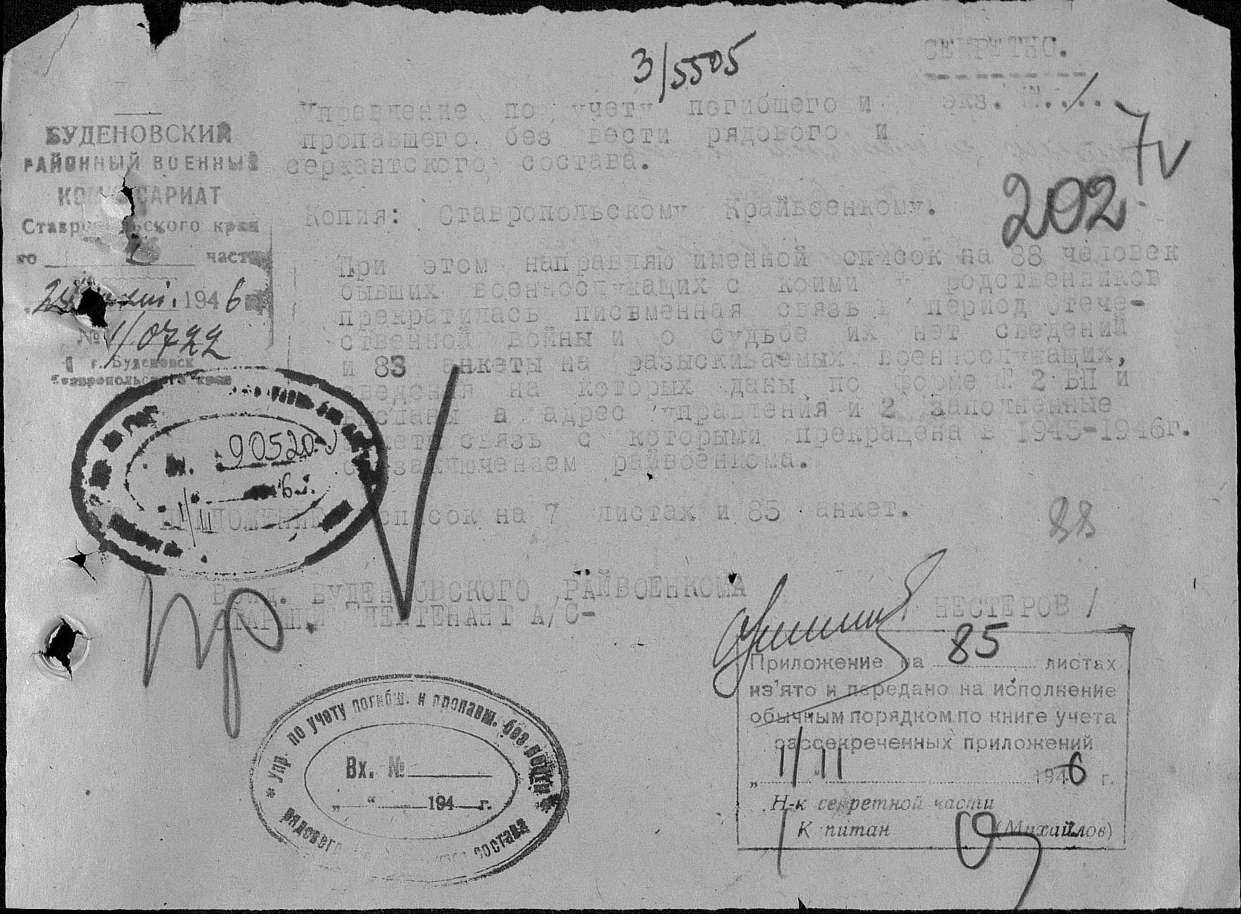 3/5505
СЕКРЕТНО.
экз. №
Управление по учету погибшего и
пропавшего без вести рядового и
сержантского состава.
7
202
БУДЕНОВСКИЙ
РАЙОННЫЙ ВОЕННЫЙ
КОМИССАРИАТ
Ставропольского края
по часть
1946
№ 1/0722
г. Буденовск
Ставропольского края
Копия: Ставропольскому Крайвоенкому.
При этом направляю именной список на 88 человек
бывших военнослужащих с коими у родственников
прекратилась письменная связь в период отече-
ственной войны и о судьбе их нет сведений
и 83 анкеты на разыскиваемых военнослужащих,
сведения на которых даны по форме № 2 БП и
высланы в адрес управления и 2 заполненные
анкеты связь с которыми прекращена в 1945-1946г.
с заключением райвоенкома.
Вх. 90520
6 г.
ПРИЛОЖЕНИЕ: список на 7 листах и 85 анкет.
88
ВРИД. БУДЕНОВСКОГО РАЙВОЕНКОМА
СТАРШИЙ ЛЕЙТЕНАНТ А/С-
НЕСТЕРОВ/
пр.
Приложение на 85 листах
из'ято и передано на исполнение
обычным порядком по книге учета
рассекреченных приложений
„ 11/11 1946 г.
Н-к секретной части
Капитан (Михайлов)
* Упр. по учету погибш. и пропавш. без вести *
рядового состава
Вх. №
„ “ 194 г.